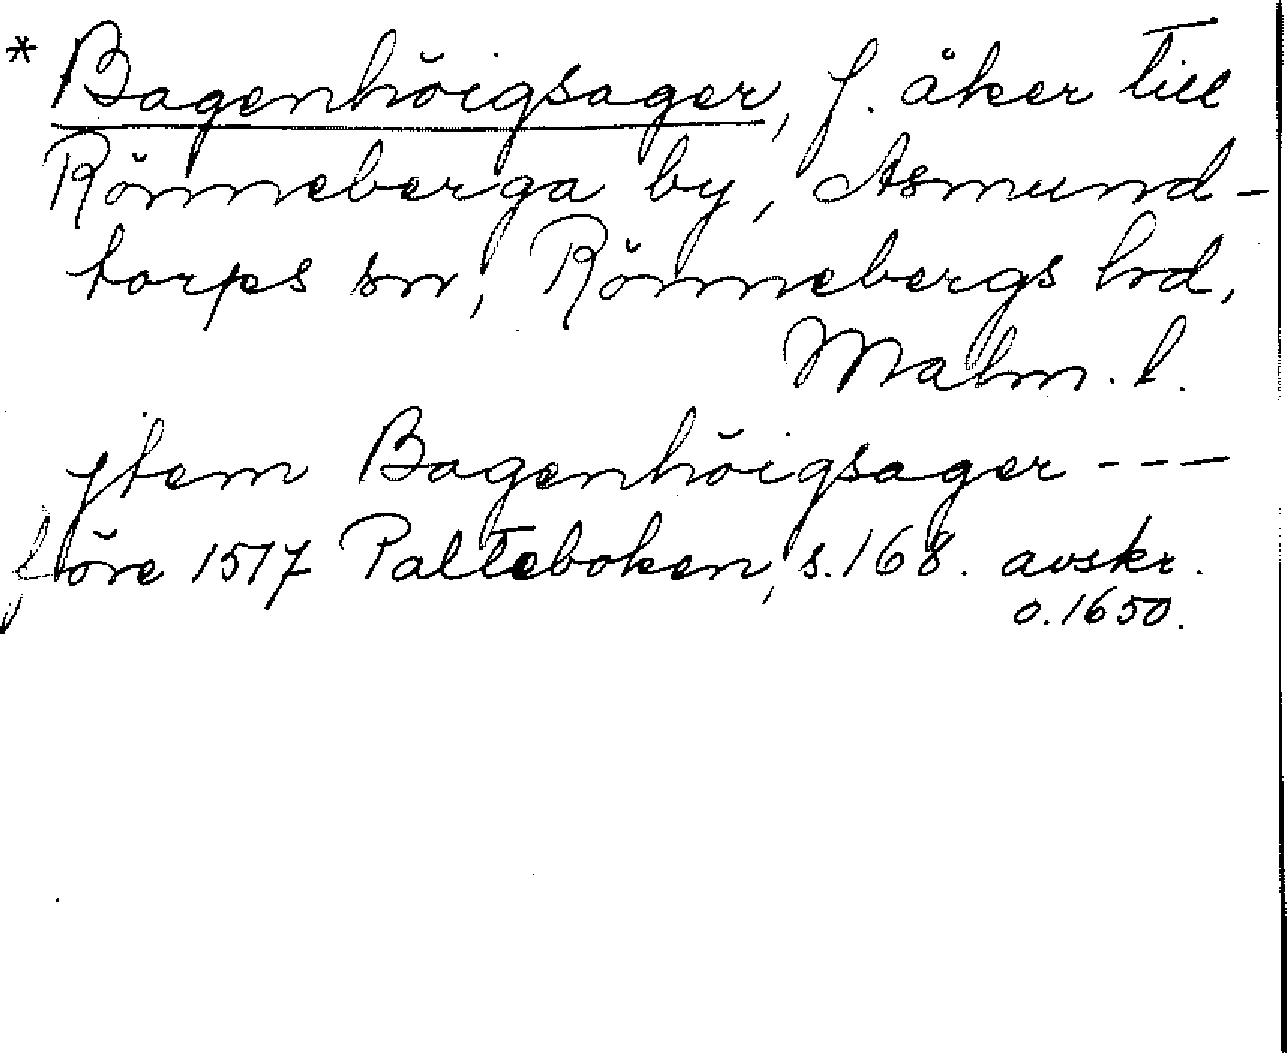 * Bagenhöigsager, f. åker till
Rönneberga by, Asmund-
torps sn, Rönnebergs hd,
Malm. l.
jtem Bagenhöigsager ---
före 1517 Palteboken, s. 168. avskr.
o. 1650.